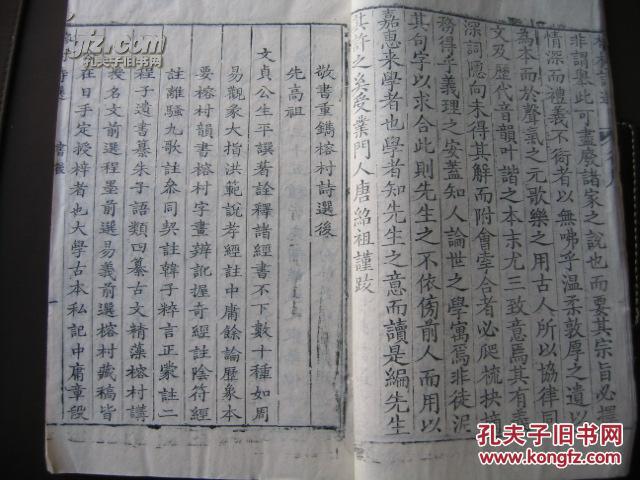 非謂舉此可盡廢諸家之說也而要其宗旨必擇
情深而禮義不衒者以無咈乎溫柔敦厚之遺以
為本而於聲氣之元歌樂之用古人所以協律同
文及歷代音韻叶諧之本末尤三致意焉其有
深詞隱向未得其解而附會牽合者必爬梳抉
務得乎義理之安蓋知人論世之學寓焉非徒泥
其句字以求合此則先生之不依傍前人而用以
嘉惠來學者也學者知先生之意而讀是編先生
其許之矣受業門人唐紹祖謹跋
敬書重鐫榕村詩選後
先高祖
文貞公生平譔著詮釋諸經書不下數十種如周
易觀彖大指洪範說孝經註中庸餘論歷象本
要榕村韻書榕村字畫辨訛握奇經註陰符經
註離騷九歌註叅同契註韓子粹言正蒙註二
程子遺書纂朱子語類四纂古文精藻榕村講
授名文前選程墨前選易義前選榕村藏稿皆
在日手定授梓者也大學古本私記中庸章段
孔夫子旧书网
www.kongfz.com
孔夫子旧书网
www.kongfz.com